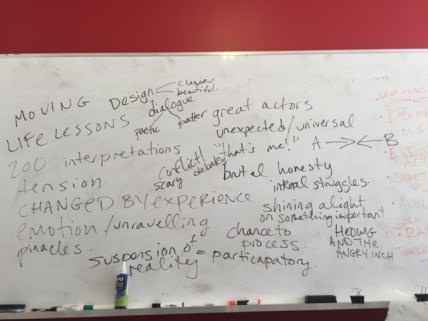 MOVING Design clever beautiful.
dialogue
poetic patter great actors
LIFE LESSONS unexpected/universal
200 interpretations conflict! debates "that's me!" A → ← B
scary
tension brutal honesty
internal struggles.
CHANGED BY EXPERIENCE
shining a light
on something important
emotion/unravelling chance to
process.
pinacles
HEDWIG
AND THE
ANGRY INCH
suspension of
reality = participatory.